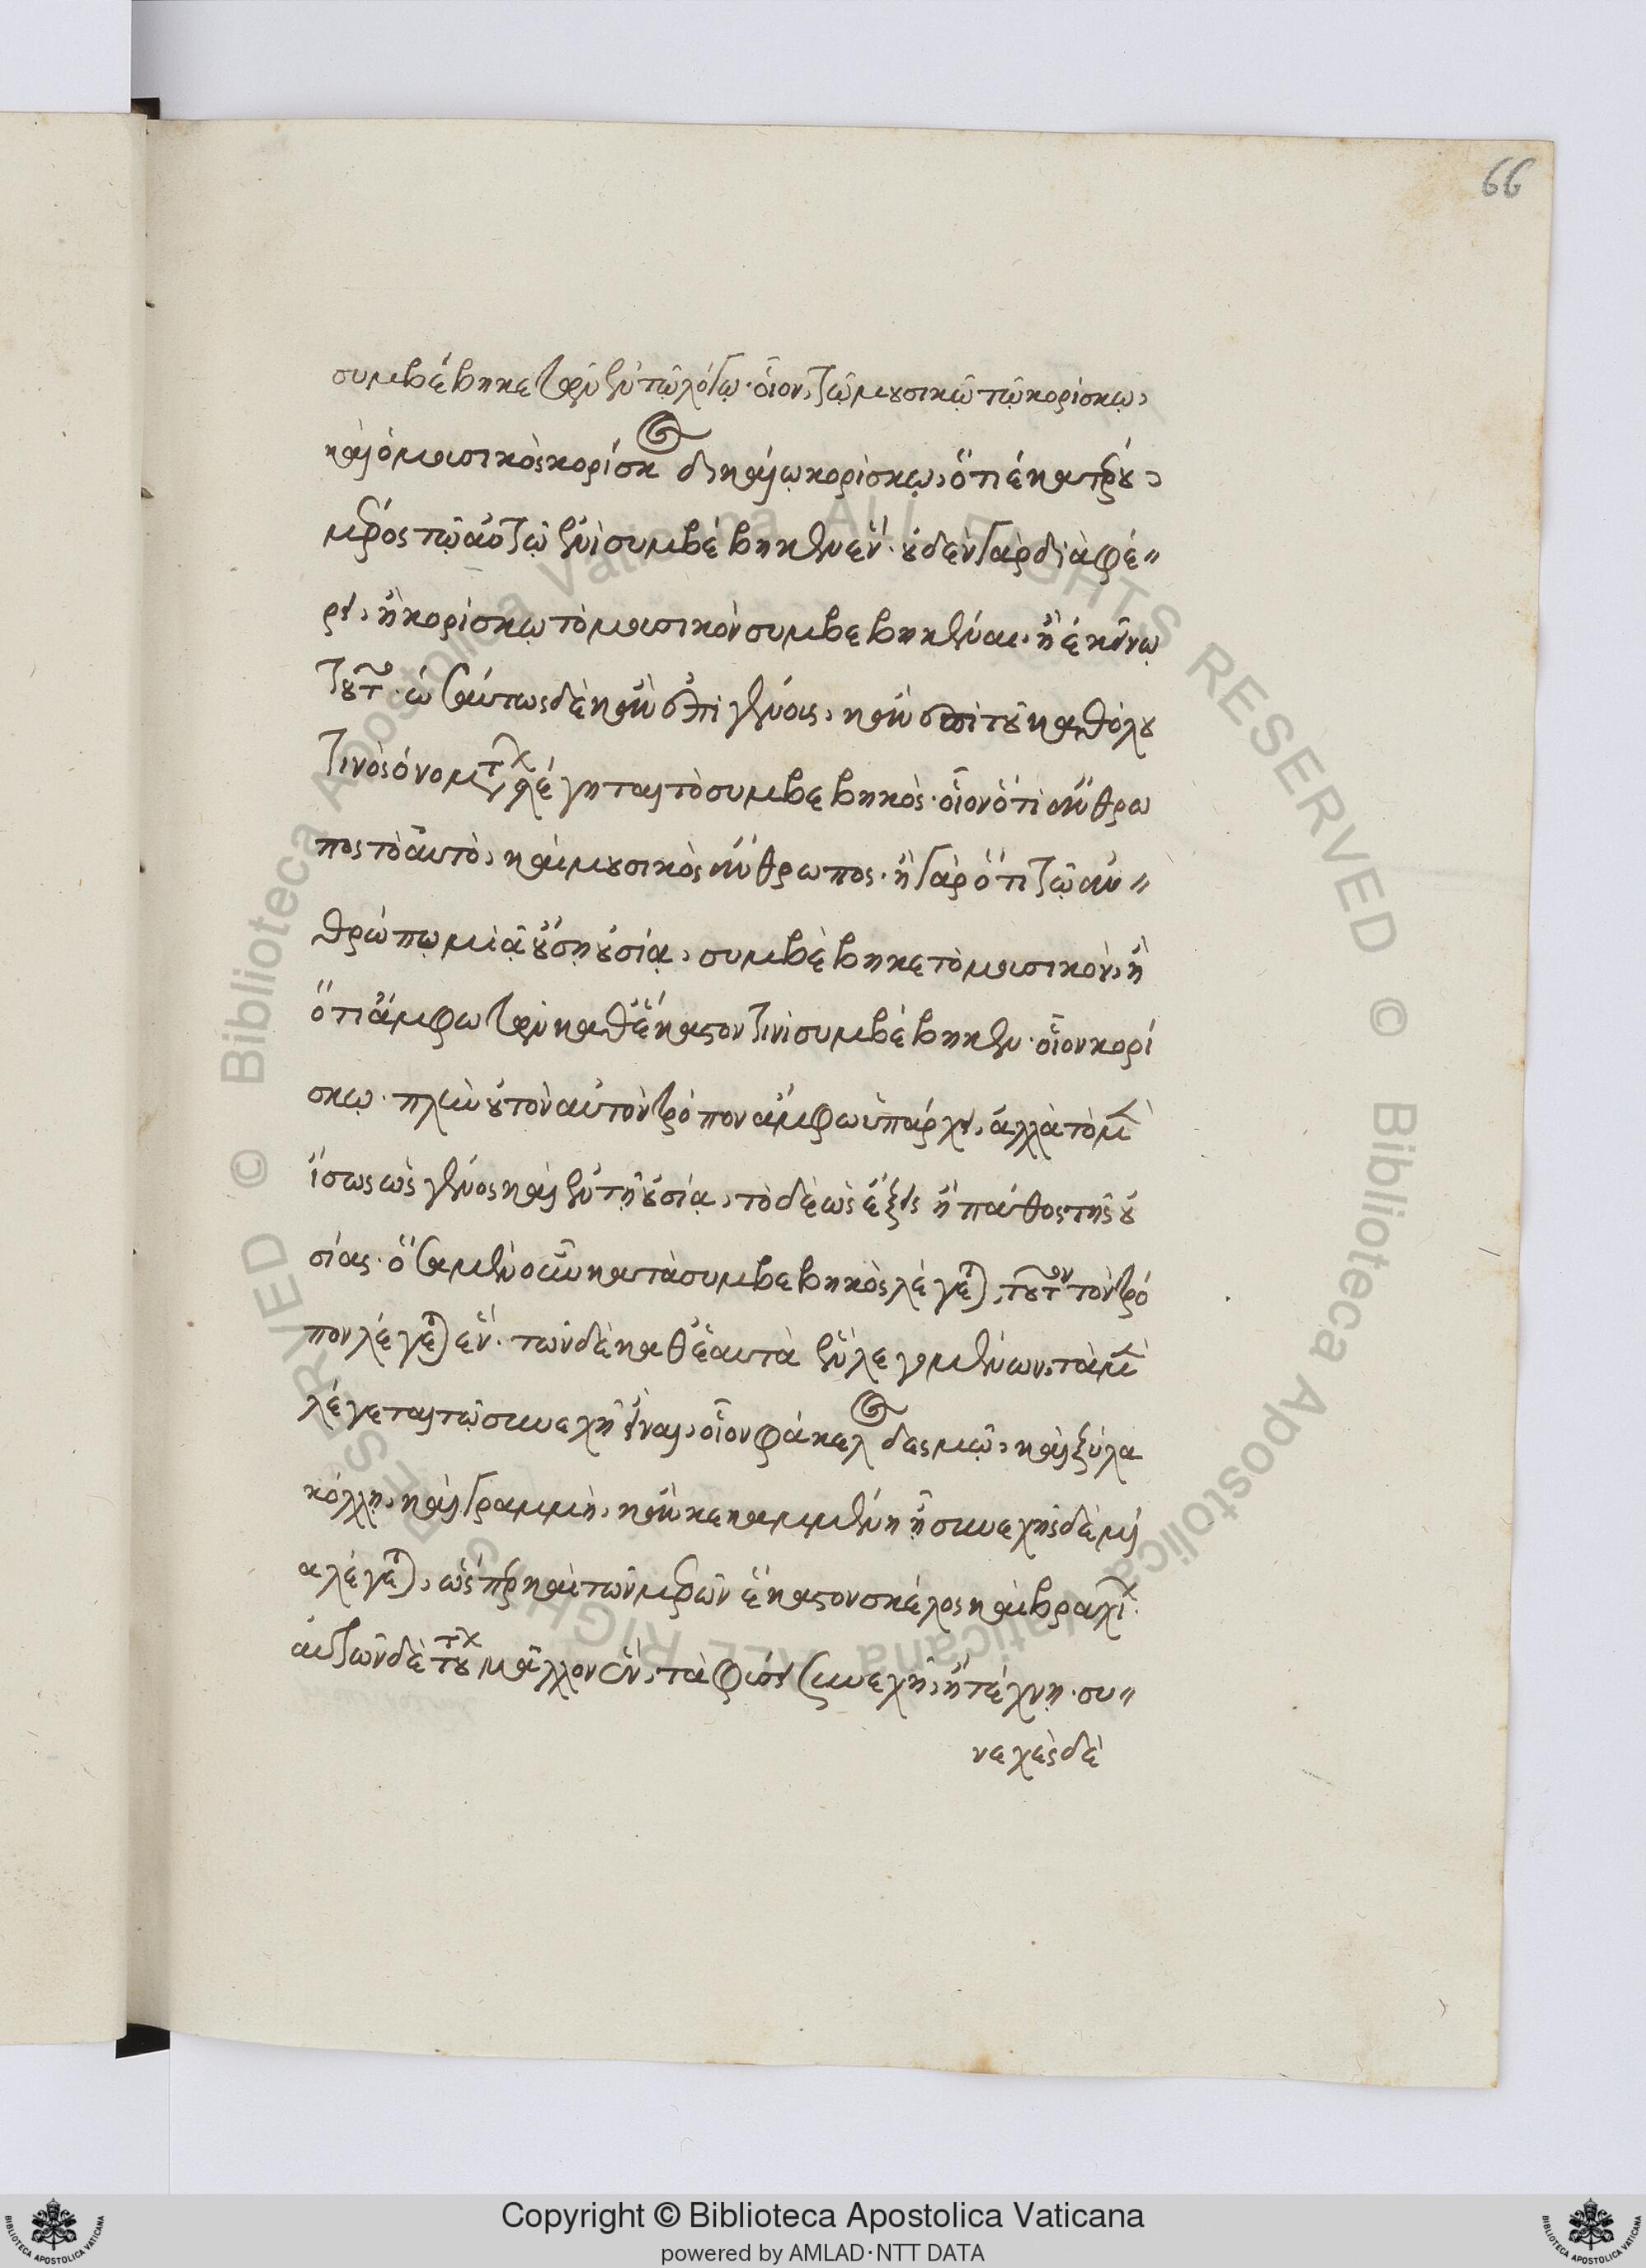 66
συμβέβηκε θάτερον ἓν τῷ λόγῳ· οἷον, τῷ μουσικῷ τῷ κορίσκῳ,
καὶ ὁ μουσικὸς κορίσκος δικαίῳ κορίσκῳ, ὅτι ἑκατέρου,
μέρος τῷ αὐτῷ ἑνὶ συμβέβηκεν ἕν· οὐδὲν γὰρ διαφέ〃
ρει, ἢ κορίσκῳ τὸ μουσικὸν συμβεβηκέναι, ἢ ἐκείνῳ
τοῦτο· ὡσαύτως δὲ κἂν ἐπὶ γένους, κἂν ἐπὶ τοῦ καθόλου
τινὸς ὀνομάτων λέγηται τὸ συμβεβηκός· οἷον ὅτι ἄνθρω
πος τὸ αὐτὸ, καὶ μουσικὸς ἄνθρωπος· ἢ γὰρ ὅτι τῷ ἀν〃
θρώπῳ μιᾷ οὔσῃ οὐσίᾳ, συμβέβηκε τὸ μουσικόν, ἢ
ὅτι ἄμφω τῶν καθ' ἕκαστόν τινι συμβέβηκεν· οἷον κορί
σκῳ· πλὴν οὐ τὸν αὐτὸν τρόπον ἄμφω ὑπάρχει, ἀλλὰ τὸ μὲν
ἴσως ὡς γένος καὶ ἓν τῇ οὐσίᾳ, τὸ δὲ ὡς ἕξις ἢ πάθος τῆς οὐ
σίας· ὅσα μὲν οὖν κατὰ συμβεβηκὸς λέγεται, τοῦτον τὸν τρό
πον λέγεται ἕν· τῶν δὲ καθ' ἑαυτὰ ἓν λεγομένων, τὰ μὲν
λέγεται τῷ συνεχῆ εἶναι, οἷον φάκελος δεσμῷ, καὶ ξύλα
κόλλῃ, καὶ γραμμὴ, κἂν κεκαμμένη ᾖ συνεχὴς δὲ μί
α λέγεται, ὥσπερ καὶ τῶν μερῶν ἕκαστον σκέλος καὶ βραχίων·
αὐτῶν δὲ τούτων μᾶλλον ἓν, τὰ φύσει συνεχῆ, ἢ τέχνῃ· συ〃
νεχὲς δὲ
Copyright © Biblioteca Apostolica Vaticana
powered by AMLAD·NTT DATA